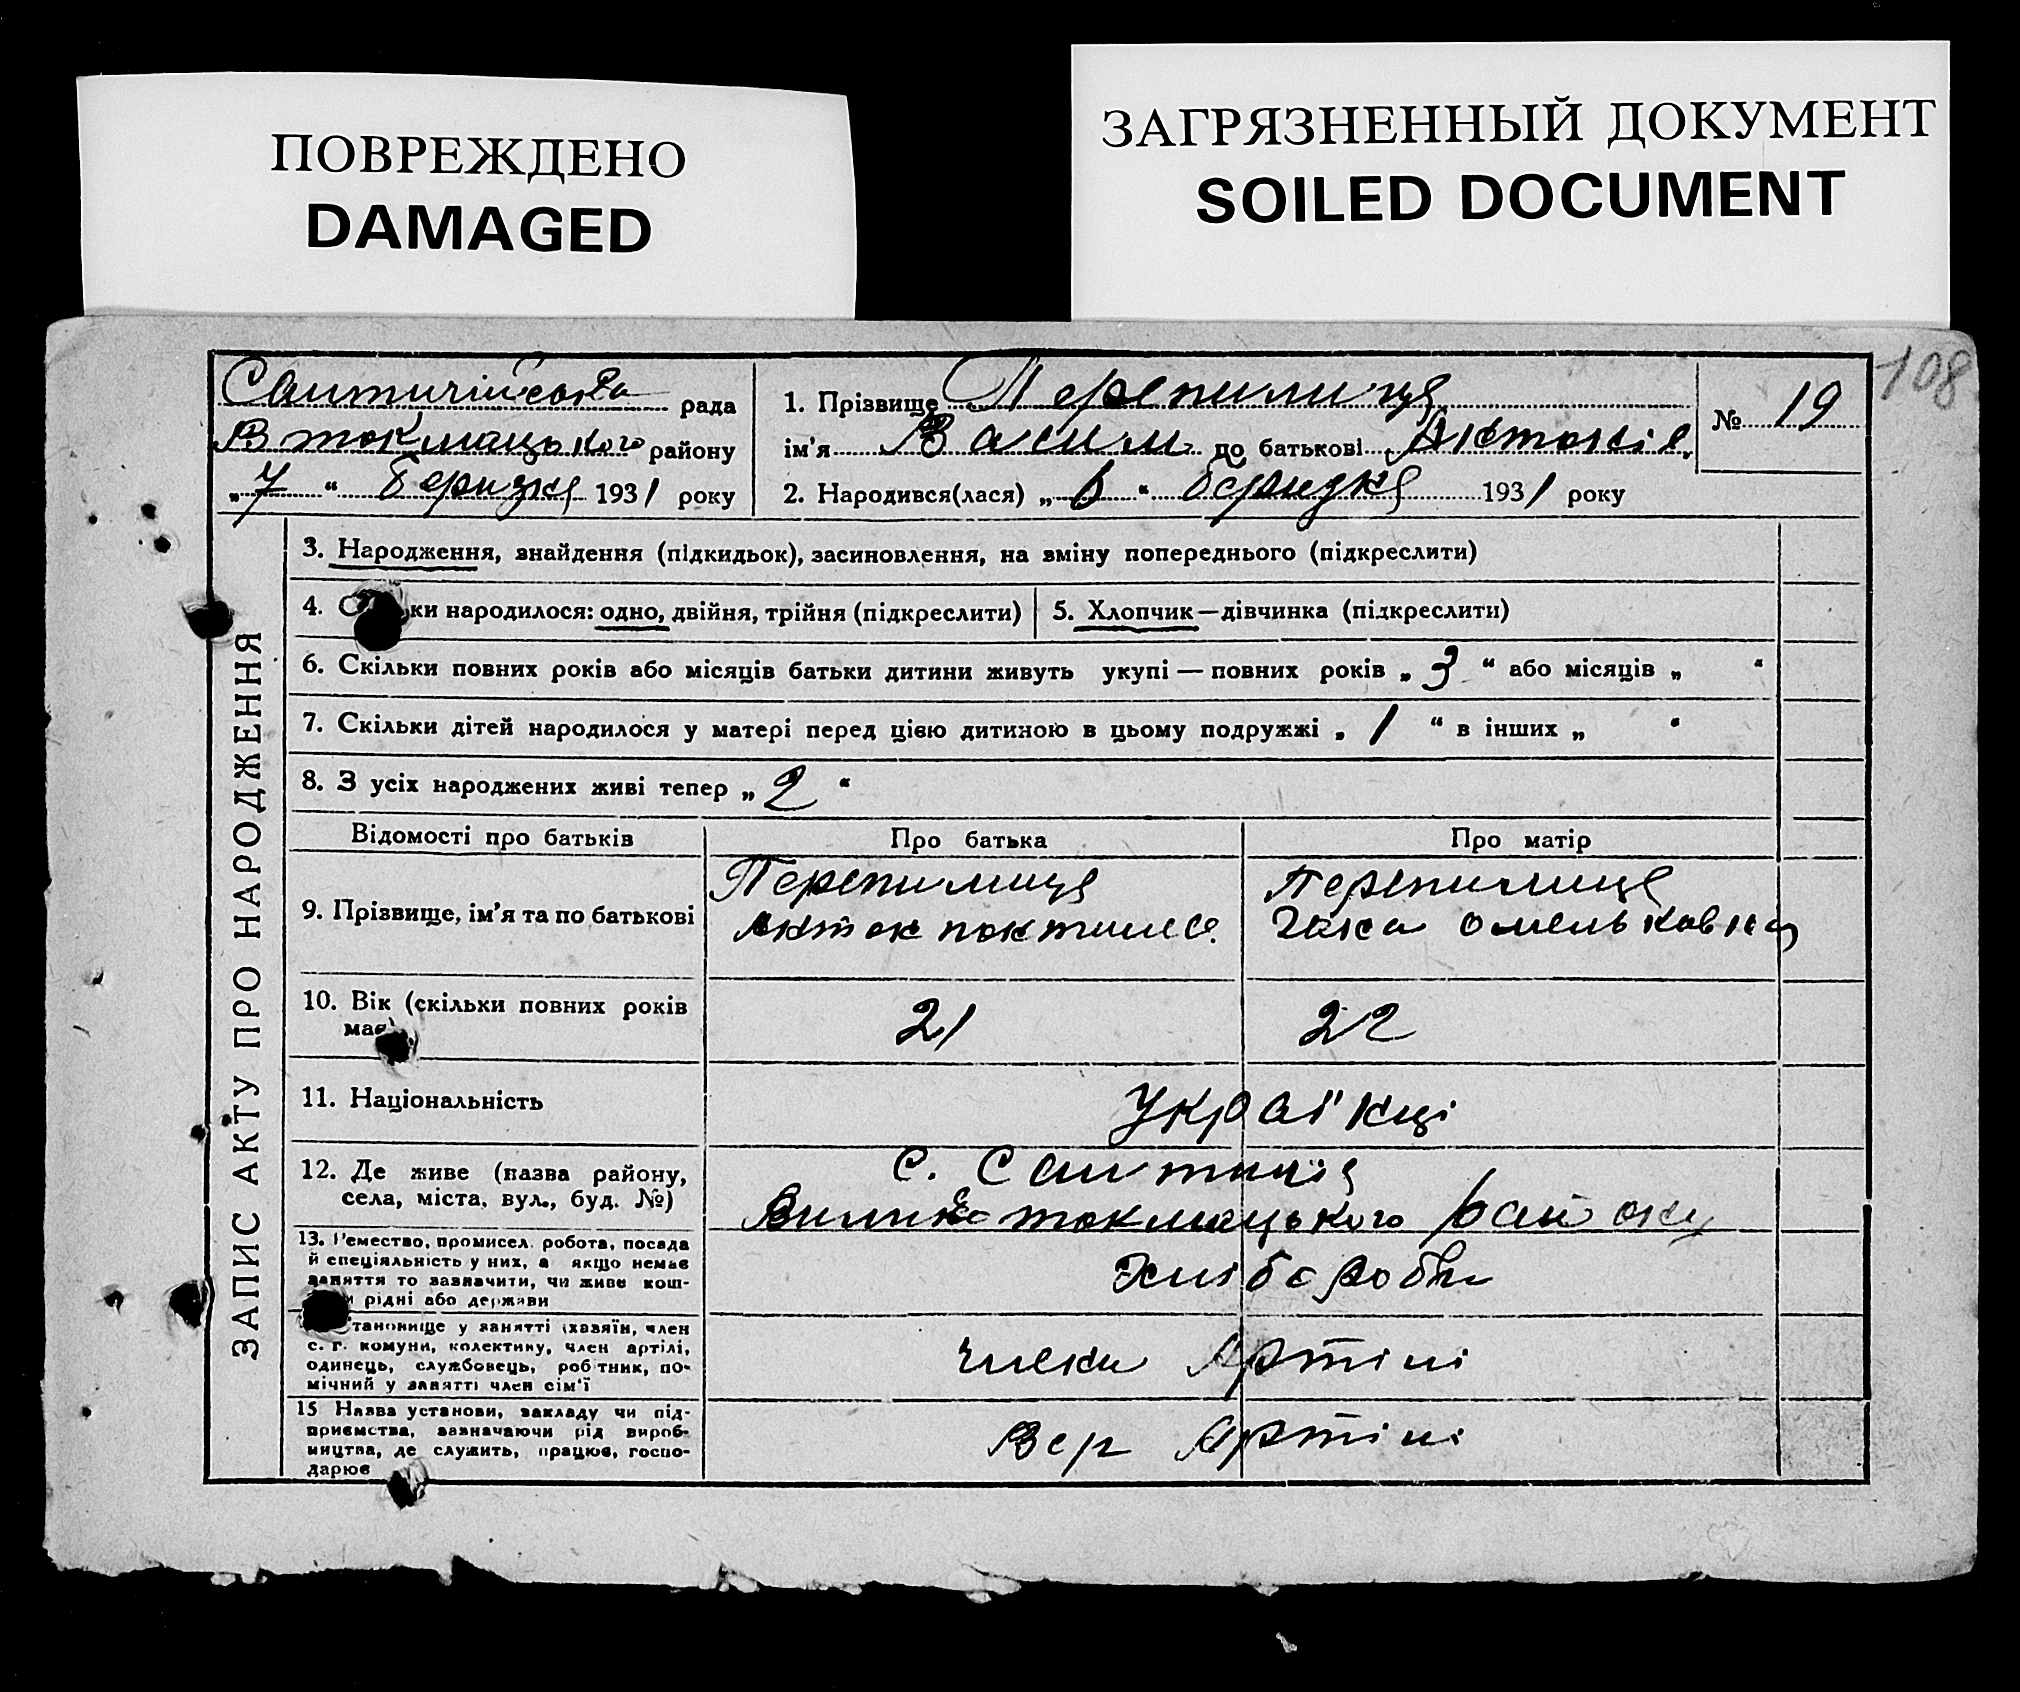 ПОВРЕЖДЕНО
DAMAGED
ЗАГРЯЗНЕННЫЙ ДОКУМЕНТ
SOILED DOCUMENT
108
рада
В токмацького району
„ 7 “ Березня 1931 року
1. Прізвище Перепилиця
ім'я Васил по батькові Антонів
№ 19
2. Народився(лася) „ 6 “ березня 1931 року
ЗАПИС АКТУ ПРО НАРОДЖЕННЯ
3. Народження, знайдення (підкидьок), засиновлення, на зміну попереднього (підкреслити)
4. С ки народилося: одно, двійня, трійня (підкреслити)
5. Хлопчик—дівчинка (підкреслити)
6. Скільки повних років або місяців батьки дитини живуть укупі — повних років „ 3 “ або місяців „ “
7. Скільки дітей народилося у матері перед цією дитиною в цьому подружжі „ 1 “ в інших „ “
8. З усіх народжених живі тепер „ 2 “
Відомості про батьків
Про батька
Про матір
9. Прізвище, ім'я та по батькові
Перепилиця
Антон
Перепилиця
Омельковна
10. Вік (скільки повних років
має)
21
22
11. Національність
Украінці
12. Де живе (назва району,
села, міста, вул., буд. №)
с.
токмацького району
13. Ремество, промисел, робота, посада
й спеціяльність у них, а якщо немає
заняття то зазначити, чи живе кош-
и рідні або держави
Хлібороби
тановище у занятті (хазяїн, член
с. г. комуни, колективу, член артілі,
одинець, службовець, робітник, по-
мічний у занятті член сім'ї
члени Артілі
15 Назва установи, закладу чи під-
приємства, зазначаючи рід вироб-
ництва, де служить, працює, госпо-
дарює
Артілі